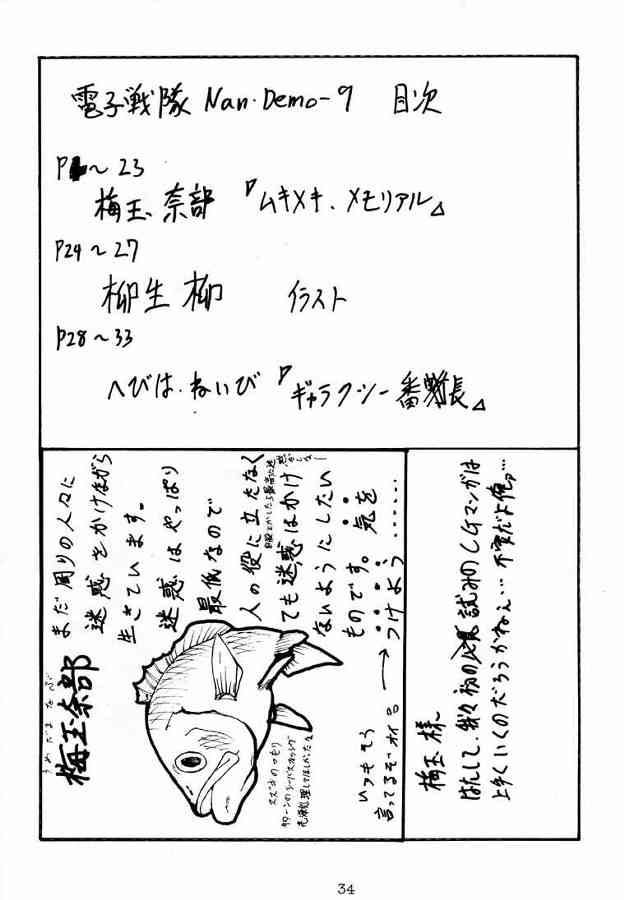 電子戦隊 Nan・Demo-9 目次
P4～23
梅玉奈部 『ムキメキ・メモリアル』
P24～27
柳生柳 イラスト
P28～33
へびは・ねいび 『ギャラクシー番長』
うめだまなぶ
梅玉奈部
まだ周りの人々に
迷惑をかけながら
生きています。
迷惑はやっぱり
最低なので
人の役に立たなく
ても迷惑はかけ
ないようにしたい
ものです。気を
つけよう……
いつもそう
言ってるぞオイ
スズキのつもり
梅玉様
はたして、我々初の試みのCGマンガは
上手くいくのだろうかねぇ…不安だよ俺ァ…
34